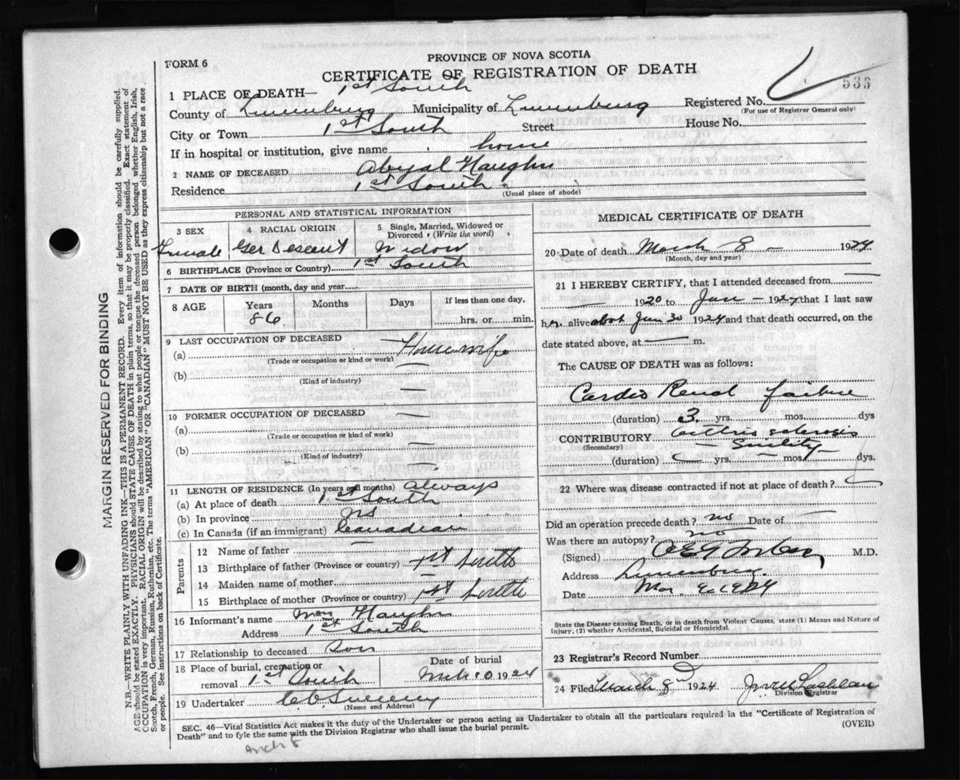 PROVINCE OF NOVA SCOTIA
FORM 6
CERTIFICATE OF REGISTRATION OF DEATH
533
1 PLACE OF DEATH— 1st South
County of Lunenburg Municipality of Lunenburg Registered No.
(For use of Registrar General only)
City or Town 1st South Street House No.
If in hospital or institution, give name home
2 NAME OF DECEASED Abygal Haughn
Residence 1st South
(Usual place of abode)
PERSONAL AND STATISTICAL INFORMATION
3 SEX
Female
4 RACIAL ORIGIN
Ger Descent
5 Single, Married, Widowed or Divorced (Write the word)
Widow
6 BIRTHPLACE (Province or Country) 1st South
7 DATE OF BIRTH (month, day and year)
8 AGE Years Months Days If less than one day,
86 hrs. or min.
9 LAST OCCUPATION OF DECEASED
(a) Housewife
(Trade or occupation or kind or work)
(b) —
(Kind of industry)
10 FORMER OCCUPATION OF DECEASED —
(a) —
(Trade or occupation or kind or work)
(b) —
(Kind of industry)
11 LENGTH OF RESIDENCE (In years and months) always
(a) At place of death 1st South
(b) In province NS
(c) In Canada (if an immigrant) Canadian
Parents
12 Name of father —
13 Birthplace of father (Province or country) 1st South
14 Maiden name of mother —
15 Birthplace of mother (Province or country) 1st South
16 Informant's name Wm Haughn
Address 1st South
17 Relationship to deceased Son
18 Place of burial, cremation or removal 1st South
Date of burial
Mch 10 1924
19 Undertaker
(Name and Address)
MEDICAL CERTIFICATE OF DEATH
20 Date of death March 8 — 1924
(Month, day and year)
21 I HEREBY CERTIFY, that I attended deceased from —
1920 to Jan — 1924 that I last saw
her alive abot Jan 30 1924 and that death occurred, on the
date stated above, at — m.
The CAUSE OF DEATH was as follows:
Cardio Renal failure
(duration) 3 yrs. mos. dys
CONTRIBUTORY Arthrio sclerosis
(Secondary) — Senility
(duration) yrs. — mos. dys.
22 Where was disease contracted if not at place of death?
Did an operation precede death? no Date of —
Was there an autopsy? no
(Signed) M.D.
Address Lunenburg
Date Mar. 1924
State the Disease causing Death, or in death from Violent Causes, state (1) Means and Nature of
Injury, (2) whether Accidental, Suicidal or Homicidal.
23 Registrar's Record Number
24 Filed March 8 1924
Division Registrar
SEC. 46—Vital Statistics Act makes it the duty of the Undertaker or person acting as Undertaker to obtain all the particulars required in the "Certificate of Registration of
Death" and to fyle the same with the Division Registrar who shall issue the burial permit.
(OVER)
MARGIN RESERVED FOR BINDING
N.B.—WRITE PLAINLY WITH UNFADING INK—THIS IS A PERMANENT RECORD. Every item of information should be carefully supplied.
AGE should be stated EXACTLY. PHYSICIANS should STATE CAUSE OF DEATH in plain terms, so that it may be properly classified. Exact statement of
OCCUPATION is very important. RACIAL ORIGIN will be described by stating to what people or tongue the deceased person belonged whether English, Irish,
Scotch, French, German, Russian, Ruthenian, etc. The terms "AMERICAN" OR "CANADIAN" MUST NOT BE USED as they express citizenship but not a race
or people. See instructions on back of Certificate.